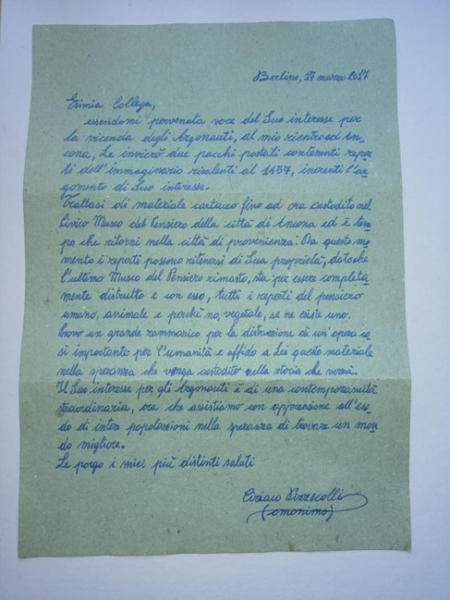 Berlino, 27 marzo 2017
Esimia Collega,
essendomi pervenuta voce del Suo interesse per
la vicenda degli Argonauti, al mio rientro ad An-
cona, Le invierò due pacchi postali contenenti reper-
ti dell'immaginario risalenti al 1457, inerenti l'ar-
gomento di Suo interesse.
Trattasi di materiale cartaceo fino ad ora custodito nel
Civico Museo del Pensiero della città di Ancona ed è tem-
po che ritorni nella città di provenienza. Da questo mo-
mento i reperti possono ritenersi di Sua proprietà, dato che
l'ultimo Museo del Pensiero rimasto, sta per essere completa-
mente distrutto e con esso, tutti i reperti del pensiero
umano, animale e perché no, vegetale, se ne esiste uno.
Provo un grande rammarico per la distruzione di un'opera co-
sì importante per l'umanità e affido a Lei questo materiale
nella speranza che venga custodito nella storia che verrà.
Il Suo interesse per gli Argonauti è di una contemporaneità
straordinaria, ora che assistiamo con apprensione all'eso-
do di intere popolazioni nella speranza di trovare un mon-
do migliore.
Le porgo i miei più distinti saluti
Ciriaco
(omonimo)